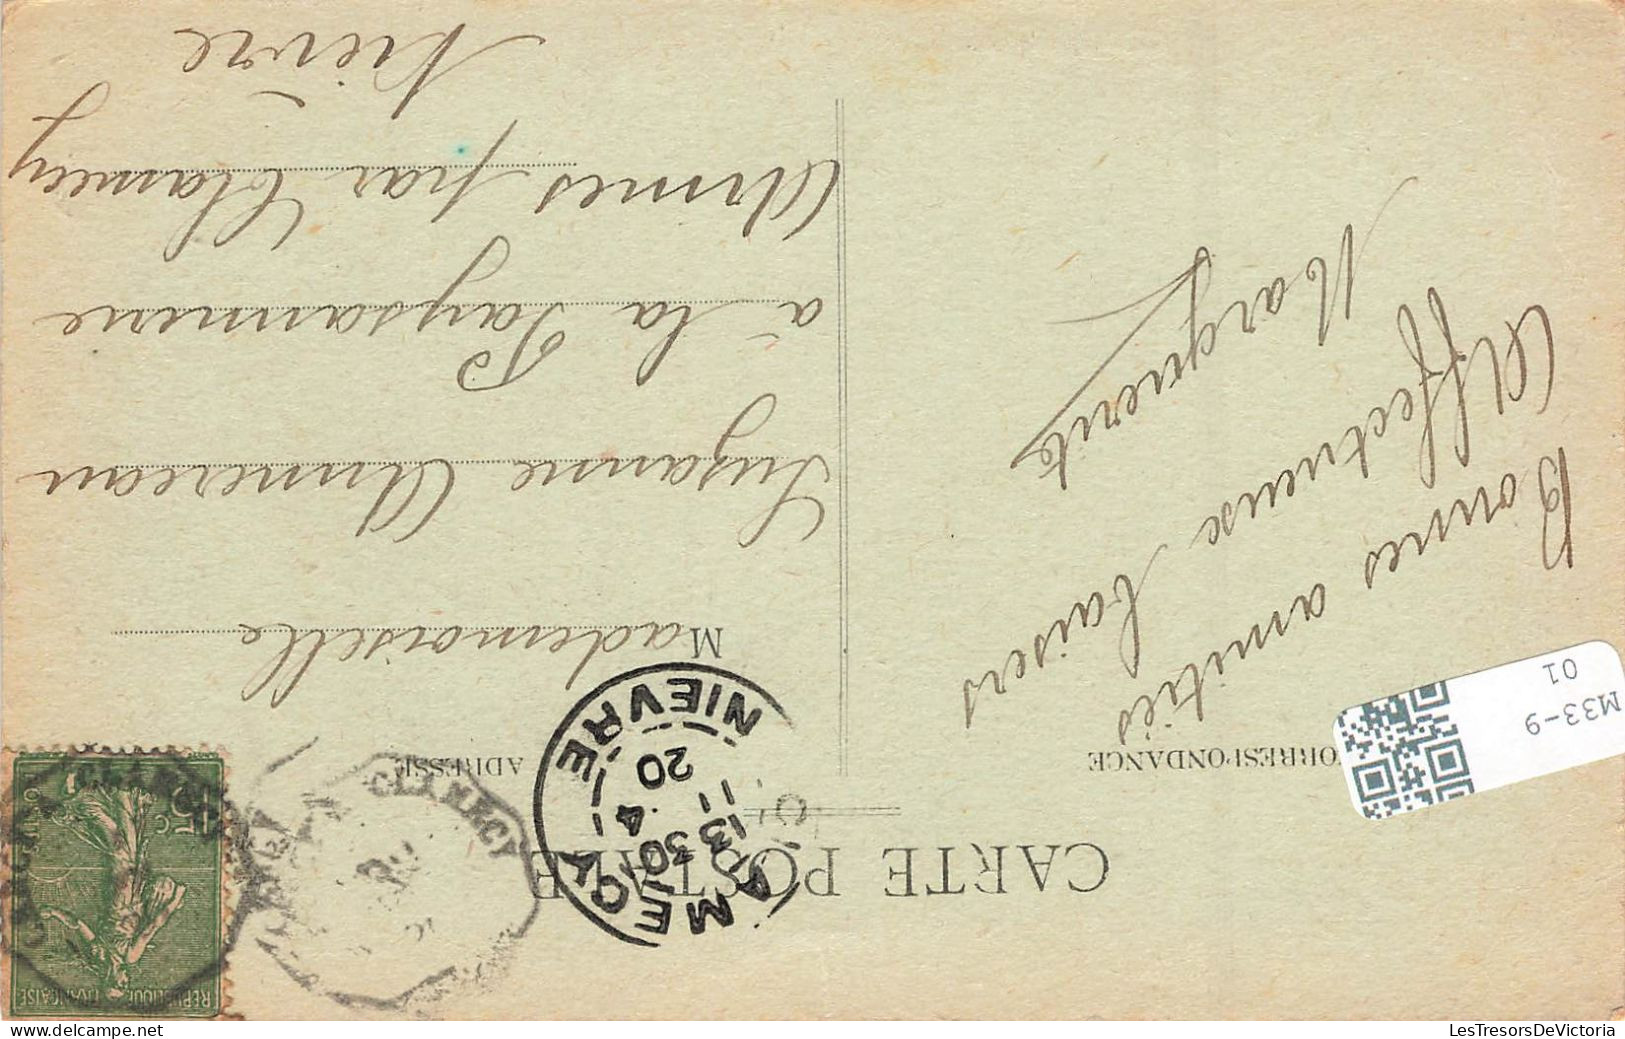 CARTE POSTALE
CORRESPONDANCE
Bonnes amitiés
Affectueux baisers
Marguerite
ADRESSE
Mademoiselle
Suzanne Annereau
à la Paysannerie
Armes par Clamecy
Nièvre
13 30
20 4
NIEVRE
CLAMECY
CLAMECY
RÉPUBLIQUE FRANÇAISE
15c
M33-9
01
LesTresorsDeVictoria
www.delcampe.net